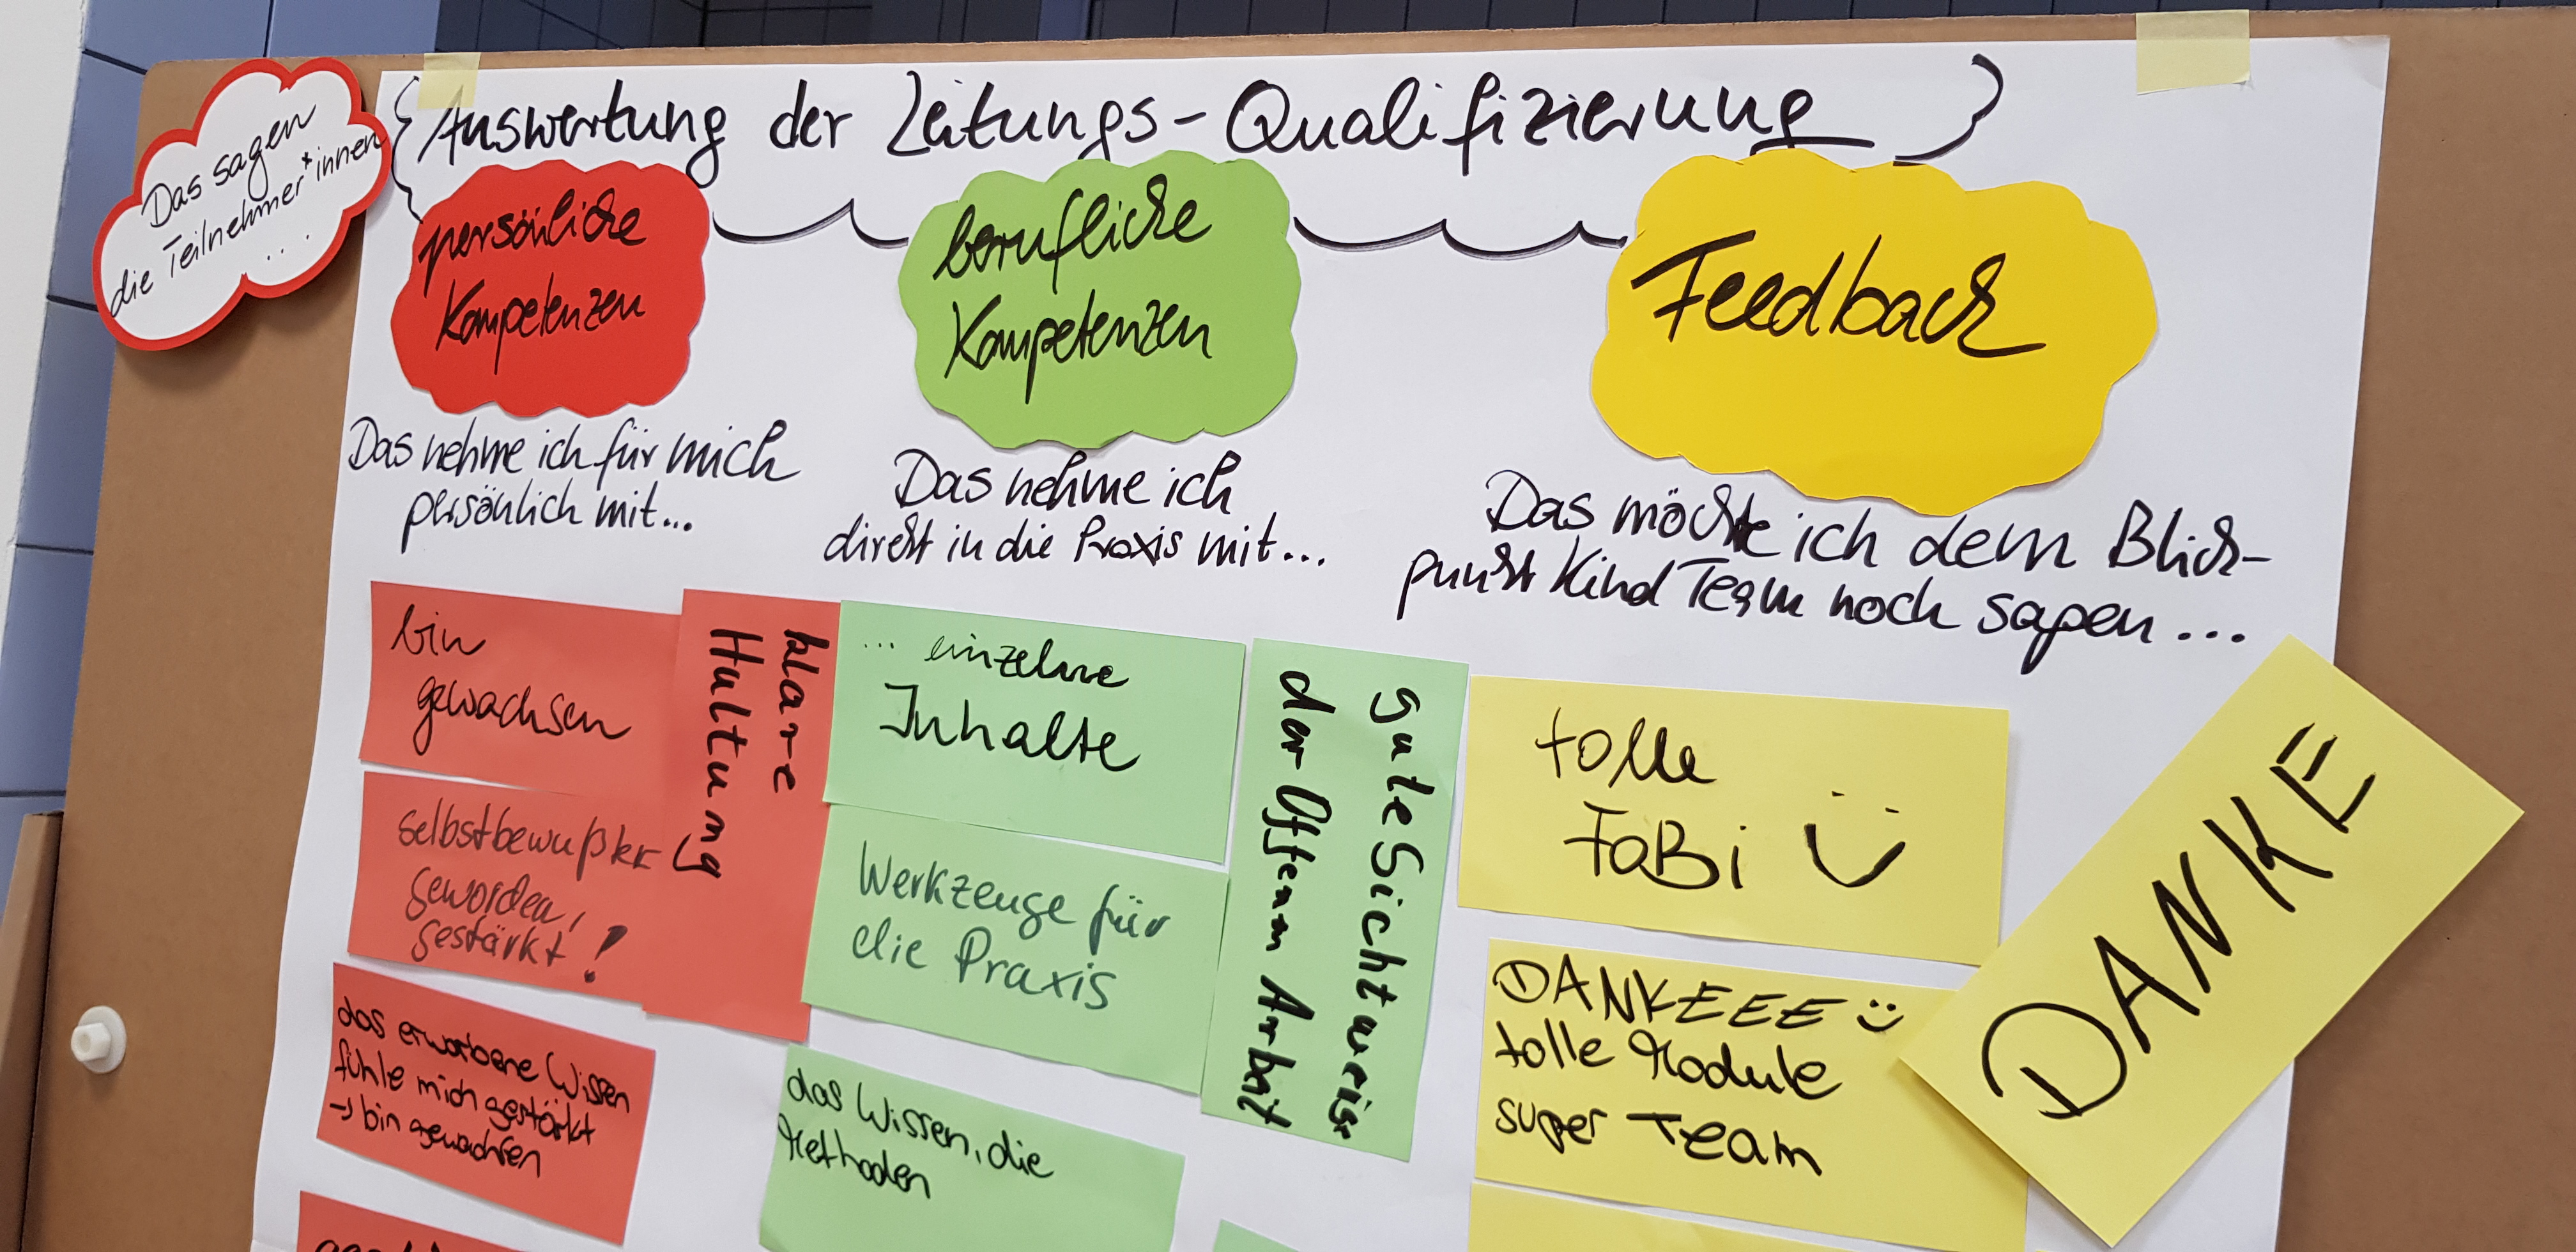 Das sagen
die Teilnehmer*innen
...
Auswertung der Leitungs-Qualifizierung
persönliche
Kompetenzen
Das nehme ich für mich
persönlich mit...
bin
gewachsen
klare
Haltung
selbstbewußter
geworden,
gestärkt!
das erworbene Wissen
fühle mich gestärkt
→ bin gewachsen
berufliche
Kompetenzen
Das nehme ich
direkt in die Praxis mit...
... einzelne
Inhalte
gute Sichtweise
der Offenen Arbeit
Werkzeuge für
die Praxis
das Wissen, die
Methoden
Feedback
Das möchte ich dem Blick-
punkt Kind Team noch sagen...
tolle
FoBi
DANKE
DANKEEEE
tolle Module
super Team